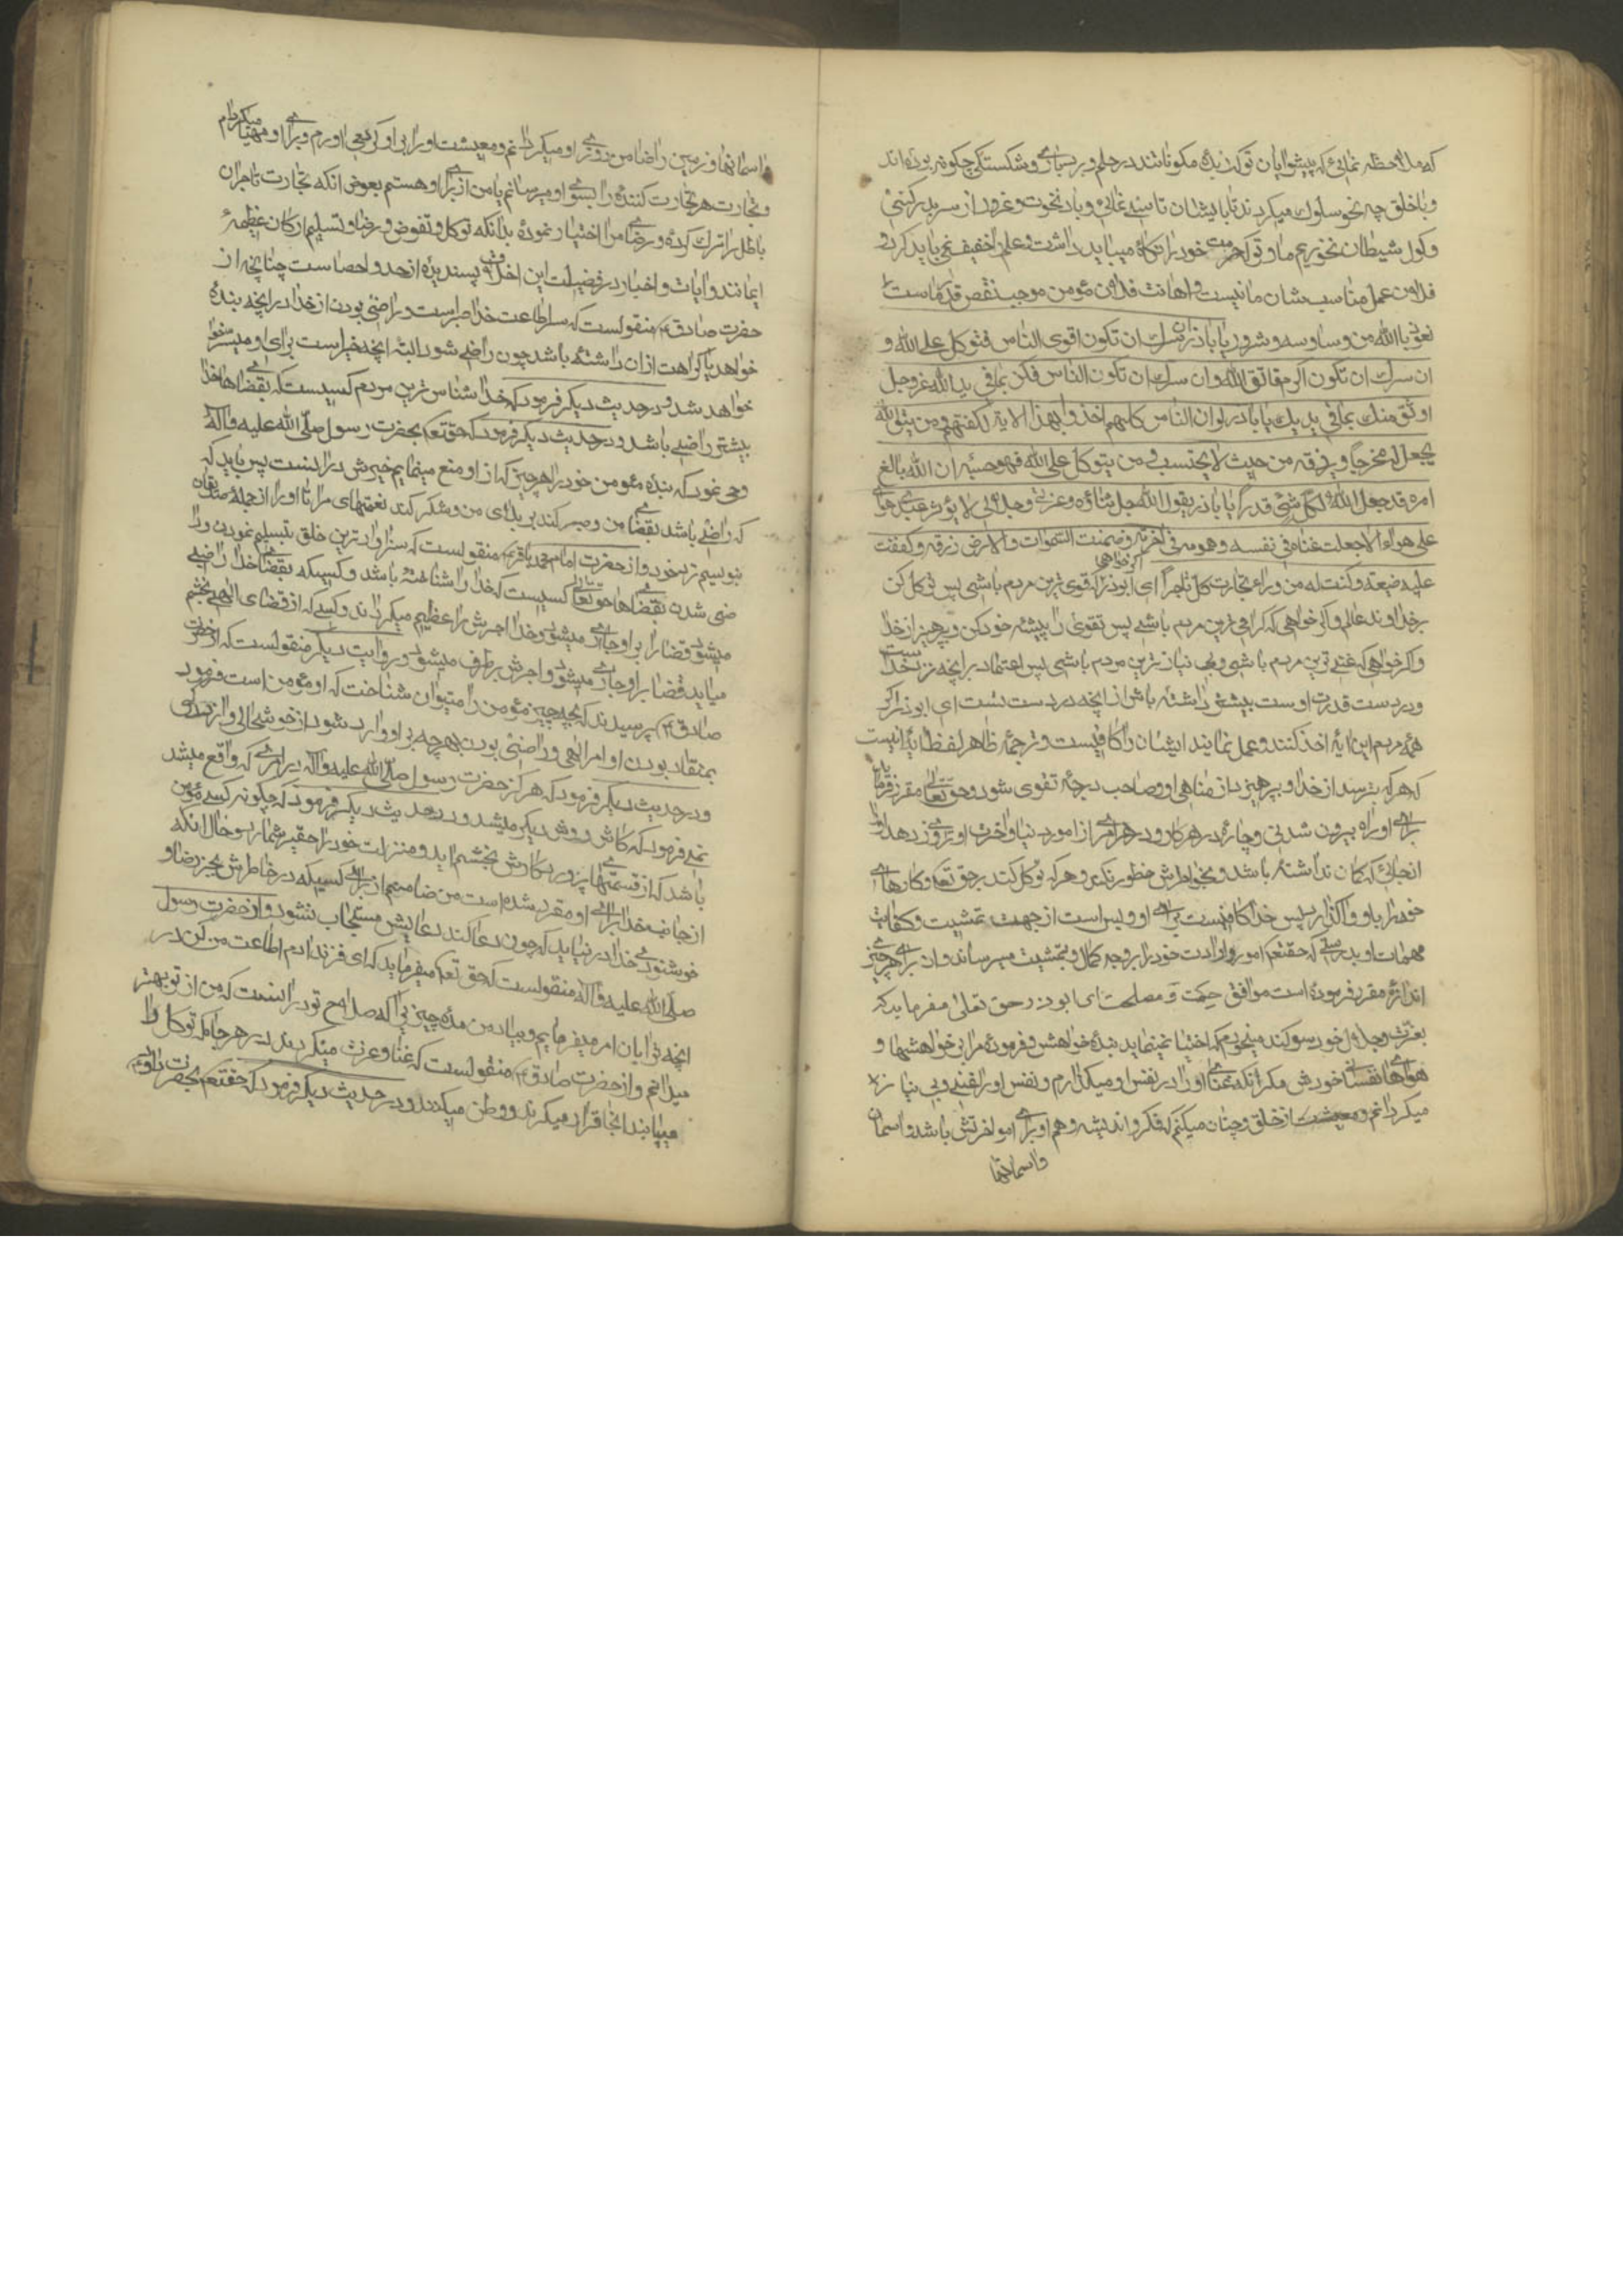 که ملاحظه نمائی که پیشوایان تو که زبدهٔ مکونانند در حلم و بردباری و شکستگی چگونه بوده‌اند
و با خلق چه نحو سلوک میکردند تا بایشان تاسی نمائی و باد نخوت و غرور از سر بدر کنی
و کول شیطان نخوریم ما و تو که حرمت خود را نگاه میباید داشت و علم را خفیف نمی باید کرد و
فلان عمل مناسب شان ما نیست و اهانت فلان مؤمن موجب نقص قدر ماست
نعوذ باالله من وساوسه و شروره یا اباذر ان سرک ان تکون اقوی الناس فتوکل علی الله و
ان سرک ان تکون اکرم فاتق الله وان سرک ان تکون الناس فکن بمافی ید الله عزوجل
اوثق منک بمافی یدیک یا اباذر لوان الناس کلهم اخذوا بهذا الایة لکفتهم ومن یتق الله
یجعل له مخرجا ویرزقه من حیث لا یحتسب ومن یتوکل علی الله فهو حسبه ان الله بالغ
امره قد جعل الله لکل شئ قدرا یا باذر یقول الله جل ثناؤه وعزتی وجلالی لا یؤثر عبدی هوای
علی هواه الا جعلت غناه فی نفسه وهمومه فی اخرته وضمنت السموات والارض رزقه وکففت
علیه ضیعته وکنت له من وراء تجارت کل تاجر ای ابوذر اکر خواهی که قوی ترین مردم باشی پس توکل کن
بر خداوند عالم و اکر خواهی که کرامی ترین مردم باشی پس تقوی را پیشه خود کن و پرهیز از خدا
و اکر خواهی که غنی ترین مردم باشی و بی نیاز ترین مردم باشی پس اعتماد بر انچه نزد خداست
و در دست قدرت اوست بیشتر داشته باش از انچه در دست تست ای ابوذر اکر
همه مردم این ایه اخذ کنند و عمل نمایند ایشان را کافیست و ترجمه ظاهر لفظ ایه انیست
که هر که بترسد از خدا و بپرهیزد از مناهی او و صاحب درجهٔ تقوی شود و حق تعالی مقرر فرماید
برای او راه بیرون شدنی و چارهٔ در هر کار و در هر امری از امور دنیا و اخرت او و روزی دهد او را
از جائی که کمان نداشته باشد و بخاطرش خطور نکرده و هر که توکل کند بر حق تعم و کارهای
خود را باو واکذارد پس خدا کافیست برای او و بس است از جهت تمشیت و کفایت
مهمات او بدرستی که حقتعم امور و ارادت خود را بر وجه کمال و بتمشیت میرساند و از برای هر چیز
اندازهٔ مقرر فرموده است موافق حکمت و مصلحت ای ابوذر حق تعالی میفرماید که
بعزت و جلال خود سوکند میخورم که اختیار نمینماید بندهٔ خواهش و فرمودهٔ مرا بر خواهشها و
هواهای نفسانی خودش مکر انکه غنای او را در نفس او میکذارم و نفس او را غنی و بی نیاز
میکردانم و از خلق و چنان میکنم که فکر و اندیشه و هم او برای امور اخرتش باشد و اسمان
واسمانها
واسمانها و زمین را ضامن روزی او میکردانم و معیشت او را بر او کرد می اورم و برای او مهیا میکردانم
و تجارت هر تجارت کنندهٔ را بسوی او میرسانم یا من از برای او هستم بعوض انکه تجارت تاجران
باطل را ترک کرده و رضای مرا اختیار نموده بدانکه توکل و تفویض و رضا و تسلیم ارکان عظیمهٔ
ایمانند و ایات و اخبار در فضیلت این اخلاق پسندیده از حد و احصا است چنانچه از
حضرت صادق ع منقولست که سر طاعت خدا صبر است و راضی بودن از خدا در انچه بنده
خواهد یا کراهت از ان داشته باشد چون راضی شود البته انچه خیر است برای او میسر خوا
خواهد شد و در حدیث دیکر فرمود که خدا شناس ترین مردم کسیست که بقضاهای خدا
بیشتر راضی باشد و در حدیث دیکر فرمود که حقتعم بحضرت رسول صلی الله علیه واله
وحی نمود که بنده مؤمن خود را هر چیز که از او منع مینمایم خیرش در انست پس باید که
که راضی باشد بقضای من و صبر کند بر بلای من و شکر کند نعمتهای مرا تا او را از جمله صدیقان
بنویسم نزد خود و از حضرت امام محمد باقر ع منقولست که سزاوار ترین خلق بتسلیم نمودن و را
ضی شدن بقضاهای حق تعالی کسیست که خدا را شناخته باشد و کسیکه بقضای خدا راضی
میشود قضا را بر او جاری میشود و خدا اجرش را عظیم میکرداند و کسی که از قضای الهی بخشم
میاید قضا بر او جاری میشود و اجرش برطرف میشود و در روایت دیکر منقولست که از حضرت
صادق ع پرسیدند که بچه چیز مؤمن را میتوان شناخت که او مؤمن است فرمود
بمنقاد بودن او امر الهی و راضی بودن بهر چه بر او وارد شود از خوشحالی و ازردکی
و در حدیث دیکر فرمود که هرکز حضرت رسول صلی الله علیه واله در امری که واقع میشد
نمی فرمود که کاش روش دیکر میشد و در حدیث دیکر فرمود که چکونه کسی مؤمن
باشد که از قسمتهای پروردکارش بخشم اید و منزلت خود را حقیر شمارد و حال انکه
از جانب خدا برای او مقرر شده است من ضامنم از برای کسیکه در خاطرش بجز رضا و
خوشنودی خدا در نیاید که چون دعا کند دعایش مستجاب شود و از حضرت رسول
صلی الله علیه واله منقولست که حق تعم میفرماید که ای فرزند ادم اطاعت من کن در
انچه ترا بان امر میفرمایم و بیاد من مده چیزی را که صلاح تو در انست که من از تو بهتر
میدانم و از حضرت صادق ع منقولست که غنا و عزت میکردند در هر جا که توکل را
مییابند انجا قرار میکرند و وطن میکنند و در حدیث دیکر فرمود که حقتعم بحضرت داود ع